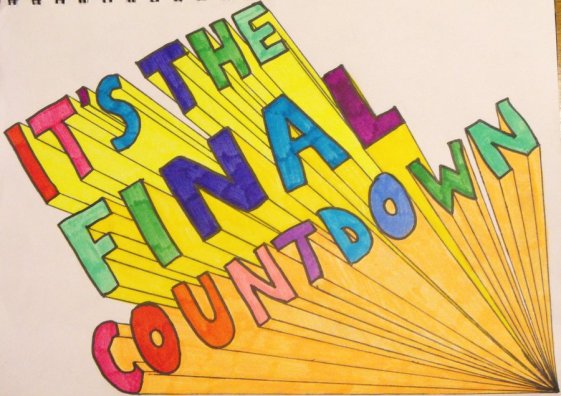 IT'S THE
FINAL
COUNTDOWN